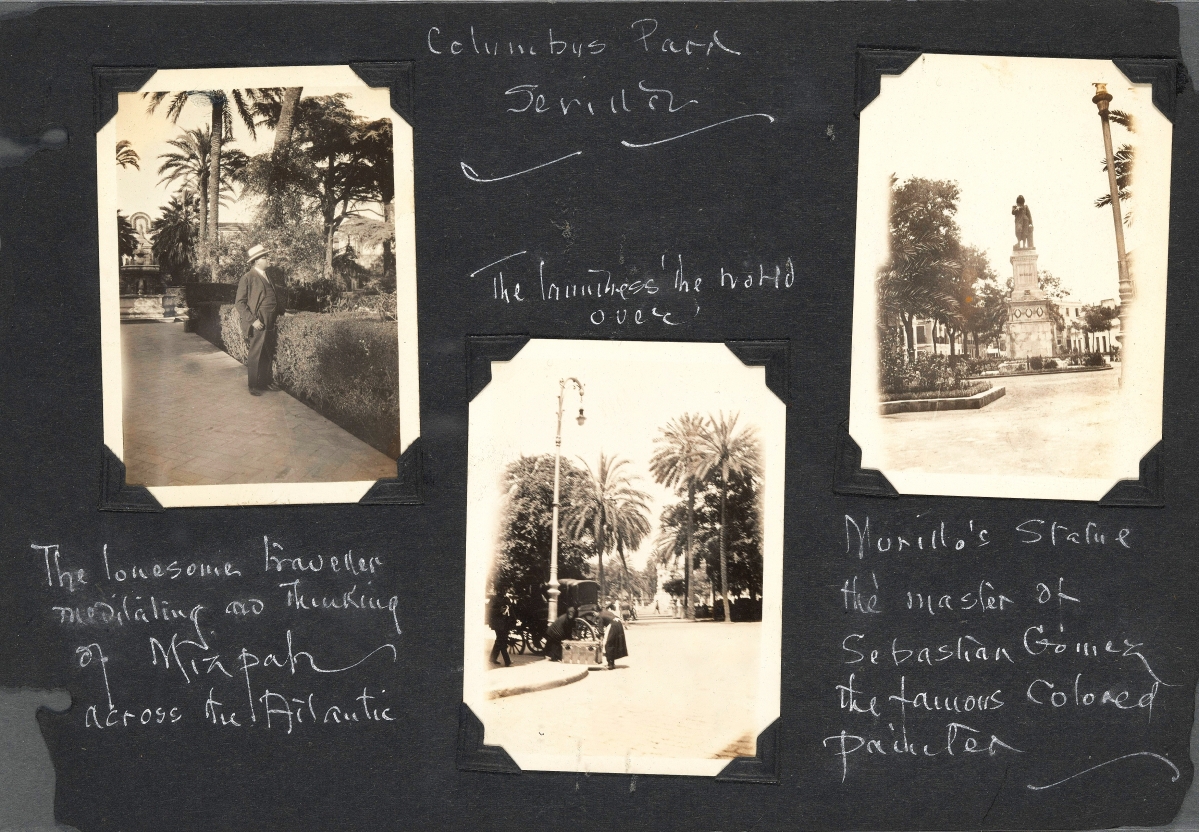 Columbus Park
Sevilla
The laundress the world
over
The lonesome traveller
meditating and thinking
of Mizpah
across the Atlantic
Murillo's Statue
the master of
Sebastian Gómez
the famous Colored
painter